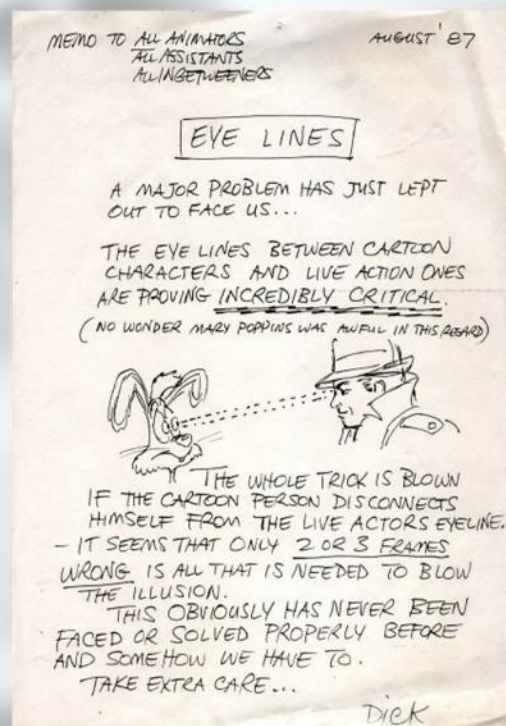 MEMO TO ALL ANIMATORS AUGUST '87
ALL ASSISTANTS
ALL INBETWEENERS
EYE LINES
A MAJOR PROBLEM HAS JUST LEPT
OUT TO FACE US...
THE EYE LINES BETWEEN CARTOON
CHARACTERS AND LIVE ACTION ONES
ARE PROVING INCREDIBLY CRITICAL.
(NO WONDER MARY POPPINS WAS AWFUL IN THIS REGARD)
THE WHOLE TRICK IS BLOWN
IF THE CARTOON PERSON DISCONNECTS
HIMSELF FROM THE LIVE ACTORS EYELINE.
- IT SEEMS THAT ONLY 2 OR 3 FRAMES
WRONG IS ALL THAT IS NEEDED TO BLOW
THE ILLUSION.
THIS OBVIOUSLY HAS NEVER BEEN
FACED OR SOLVED PROPERLY BEFORE
AND SOMEHOW WE HAVE TO.
TAKE EXTRA CARE...
DICK